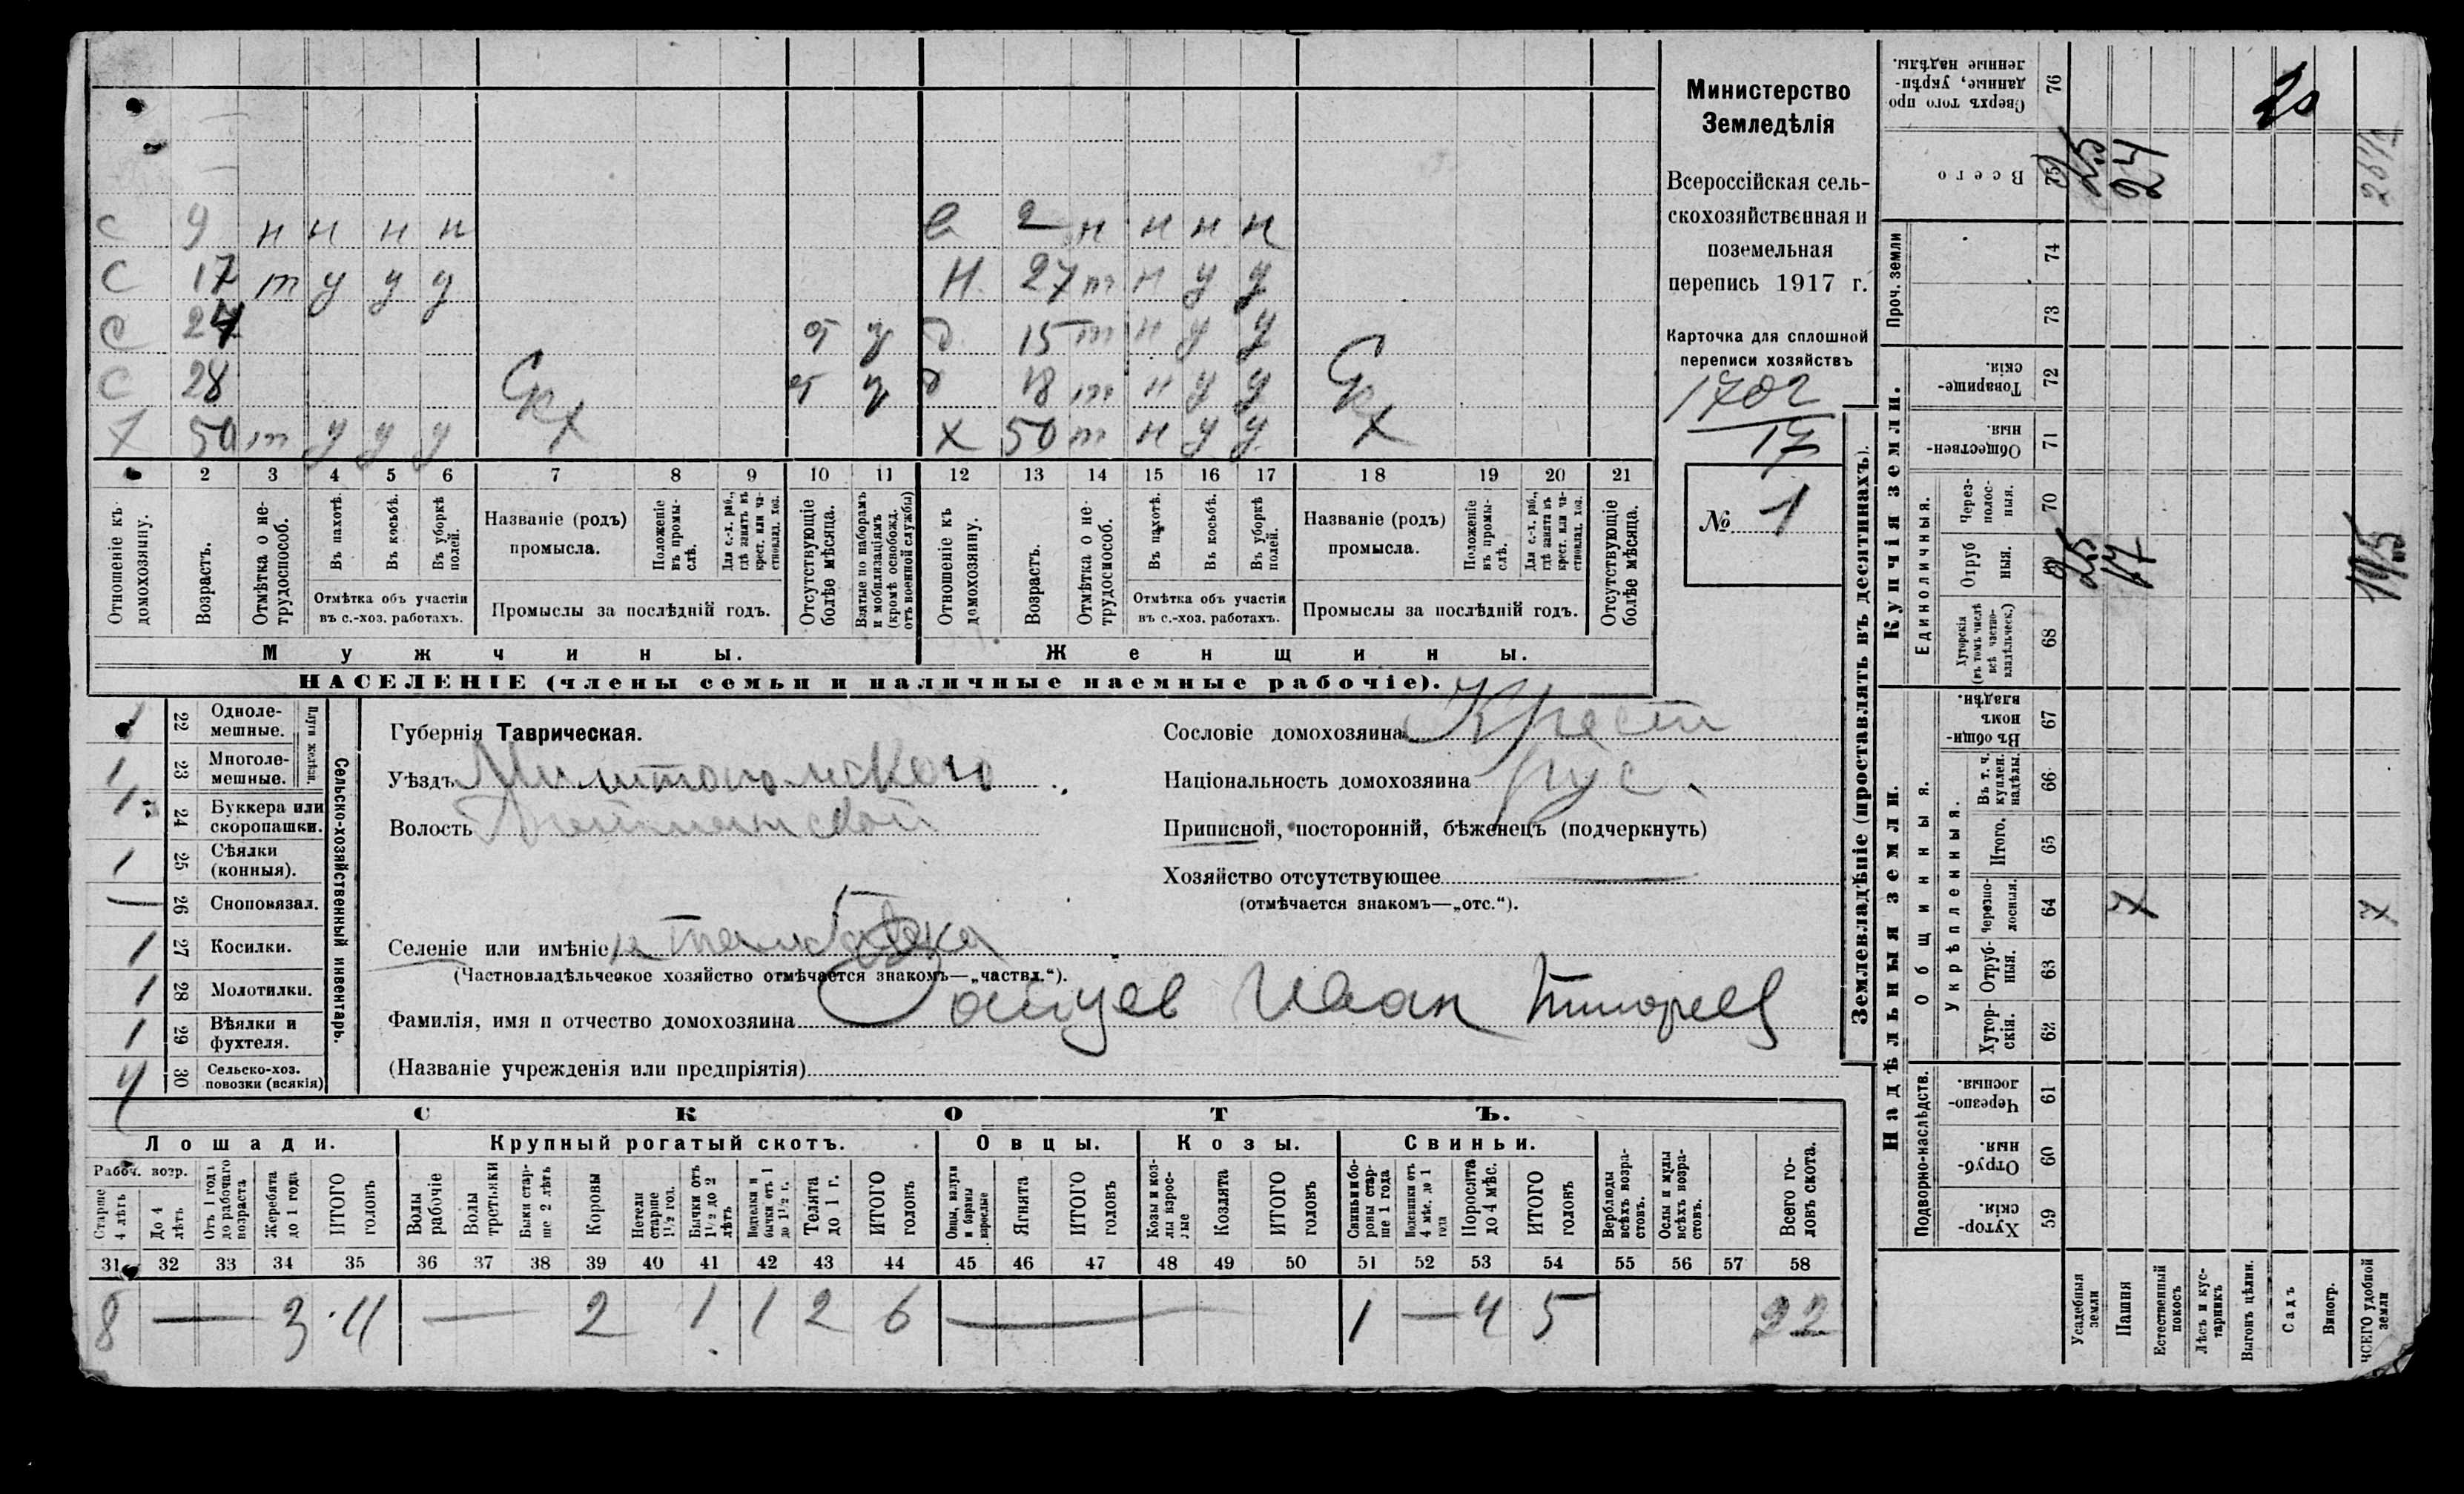 с 9 н н н н д 2 н н н н
С 17 т у у у Н. 27 т н у у
С 24 от у д 15 т н у у
С 28 от у д 18 т н у у
Х 50 т у у у Скх Х 50 т н у у Скх
1 2 3 4 5 6 7 8 9 10 11 12 13 14 15 16 17 18 19 20 21
Отношеніе къ домохозяину.
Возрастъ.
Отмѣтка о не-
трудоспособ.
Въ пахотѣ.
Въ косьбѣ.
Въ уборкѣ полей.
Отмѣтка объ участіи
въ с.-хоз. работахъ.
Названіе (родъ)
промысла.
Положеніе въ промы-
слѣ.
Для с.-х. раб., гдѣ занятъ въ крест. или ча-
стновлад. хоз.
Промыслы за послѣдній годъ.
Отсутствующіе болѣе мѣсяца.
Взятые по наборамъ и мобилизаціямъ (кромѣ освобожд. отъ военной службы)
Отношеніе къ домохозяину.
Возрастъ.
Отмѣтка о не-
трудоспособ.
Въ пахотѣ.
Въ косьбѣ.
Въ уборкѣ полей.
Отмѣтка объ участіи
въ с.-хоз. работахъ.
Названіе (родъ)
промысла.
Положеніе въ промы-
слѣ.
Для с.-х. раб., гдѣ занята въ крест. или ча-
стновлад. хоз.
Промыслы за послѣдній годъ.
Отсутствующіе болѣе мѣсяца.
Мужчины. Женщины.
НАСЕЛЕНІЕ (члены семьи и наличные наемные рабочіе).
Министерство
Земледѣлія
Всероссійская сель-
скохозяйственная и
поземельная
перепись 1917 г.
Карточка для сплошной
переписи хозяйствъ
1702
17
№ 1
1 22 Одноле-
мешные.
1 23 Многоле-
мешные.
Плуги желѣзн.
1 24 Буккера или
скоропашки.
1 25 Сѣялки
(конныя).
— 26 Сноповязал.
1 27 Косилки.
1 28 Молотилки.
1 29 Вѣялки и
фухтеля.
4 30 Сельско-хоз.
повозки (всякія)
Сельско-хозяйственный инвентарь.
Губернія Таврическая.
Уѣздъ Мелитопольского
Волость
Селеніе или имѣніе
(Частновладѣльческое хозяйство отмѣчается знакомъ—„частвл.“).
Фамилія, имя и отчество домохозяина Зайцев Иван Тимофеев
(Названіе учрежденія или предпріятія)
Сословіе домохозяина Крест
Національность домохозяина рус.
Приписной, посторонній, бѣженецъ (подчеркнуть)
Хозяйство отсутствующее —
(отмѣчается знакомъ—„отс.“).
СКОТЪ.
Лошади. Крупный рогатый скотъ. Овцы. Козы. Свиньи.
Рабоч. возр.
Старше 4 лѣтъ
До 4 лѣтъ
Отъ 1 года до рабочаго возраста
Жеребята до 1 года
ИТОГО головъ
Волы рабочіе
Волы третьяки
Быки стар-
ше 2 лѣтъ
Коровы
Нетели старше 1½ год.
Бычки отъ 1½ до 2 лѣтъ
Подтелки и бычки отъ 1 до 1½ г.
Телята до 1 г.
ИТОГО головъ
Овцы, валухи и бараны взрослые
Ягнята
ИТОГО головъ
Козы и коз-
лы взрос-
лые
Козлята
ИТОГО головъ
Свиньи и бо-
ровы стар-
ше 1 года
Подсвинки отъ 4 мѣс. до 1 года
Поросята до 4 мѣс.
ИТОГО головъ
Верблюды всѣхъ возра-
стовъ.
Ослы и мулы всѣхъ возра-
стовъ.
Всего го-
ловъ скота.
31 32 33 34 35 36 37 38 39 40 41 42 43 44 45 46 47 48 49 50 51 52 53 54 55 56 57 58
8 — 3 11 — 2 1 1 2 6 — 1 — 4 5 22
Землевладѣніе (проставлять въ десятинахъ).
Надѣльныя земли. Купчія земли.
Подворно-наслѣдств.
Общинныя.
Укрѣпленныя.
Единоличныя.
Проч. земли
Хутор-
скія. 59
Отруб-
ныя. 60
Черезпо-
лосныя. 61
Хутор-
скія. 62
Отруб-
ныя. 63
Черезпо-
лосныя. 64
Итого. 65
Въ т. ч. куплен. надѣлы. 66
Въ общи-
номъ владѣн. 67
Хуторскія (въ томъ числѣ всѣ частно-
владѣльческ.) 68
Отруб
ныя. 69
Через-
полос-
ныя. 70
Обществен-
ныя. 71
Товарище-
скія. 72
73
74
Всего 75
Сверхъ того про
данные, укрѣп-
ленные надѣлы. 76
Усадебныя земли
Пашня
Естественный покосъ
Лѣсъ и кус-
тарникъ
Выгонъ цѣлин.
Садъ
Виногр.
ВСЕГО удобной земли
7 17 24
7